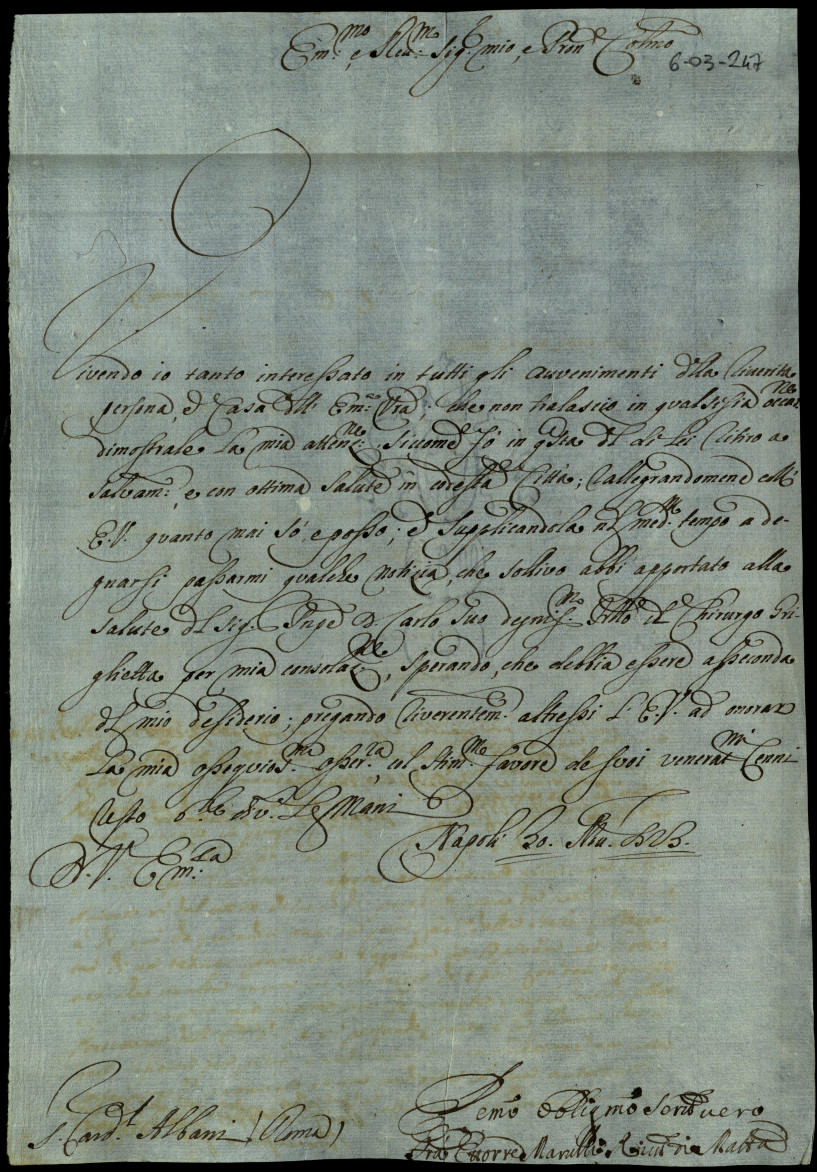 Em:mo, e Reu:mo Sig:r mio, e Pron Colmo
6-03-247
Vivendo io tanto interessato in tutti gli auvenimenti dlla riverita
persona, e Casa dll' Em:za Vra, che non tralascio in qualsisia occas:ne
dimostrale la mia atten:ne, siccome fò in qsta dl di Lei ritiro a
salvam:, e con ottima salute in codesta Città; rallegrandomene coll'
E.V. quanto mai sò, e posso; e supplicandola nel med:mo tempo a de-
gnarsi passarmi qualche notizia, che sollivo abbi apportato alla
salute dl Sig:r Pnpe D. Carlo suo degnis:mo Frllo il Chirurgo Gri-
ghetta per mia consolaz:ne, sperando, che debbia essere asseconda
dl mio desiderio; pregando riverentem: altressi l' E.V. ad onorar
la mia ossequios:ma osser:za col stim:mo favore de suoi venerat:mi Cenni
resto b:le div:te le Mani
D. V. Em:za
Napoli
S. Card:l Albani (Roma)
Demo Obligmo Serv vero
Fra Ettorre Marulli Malta